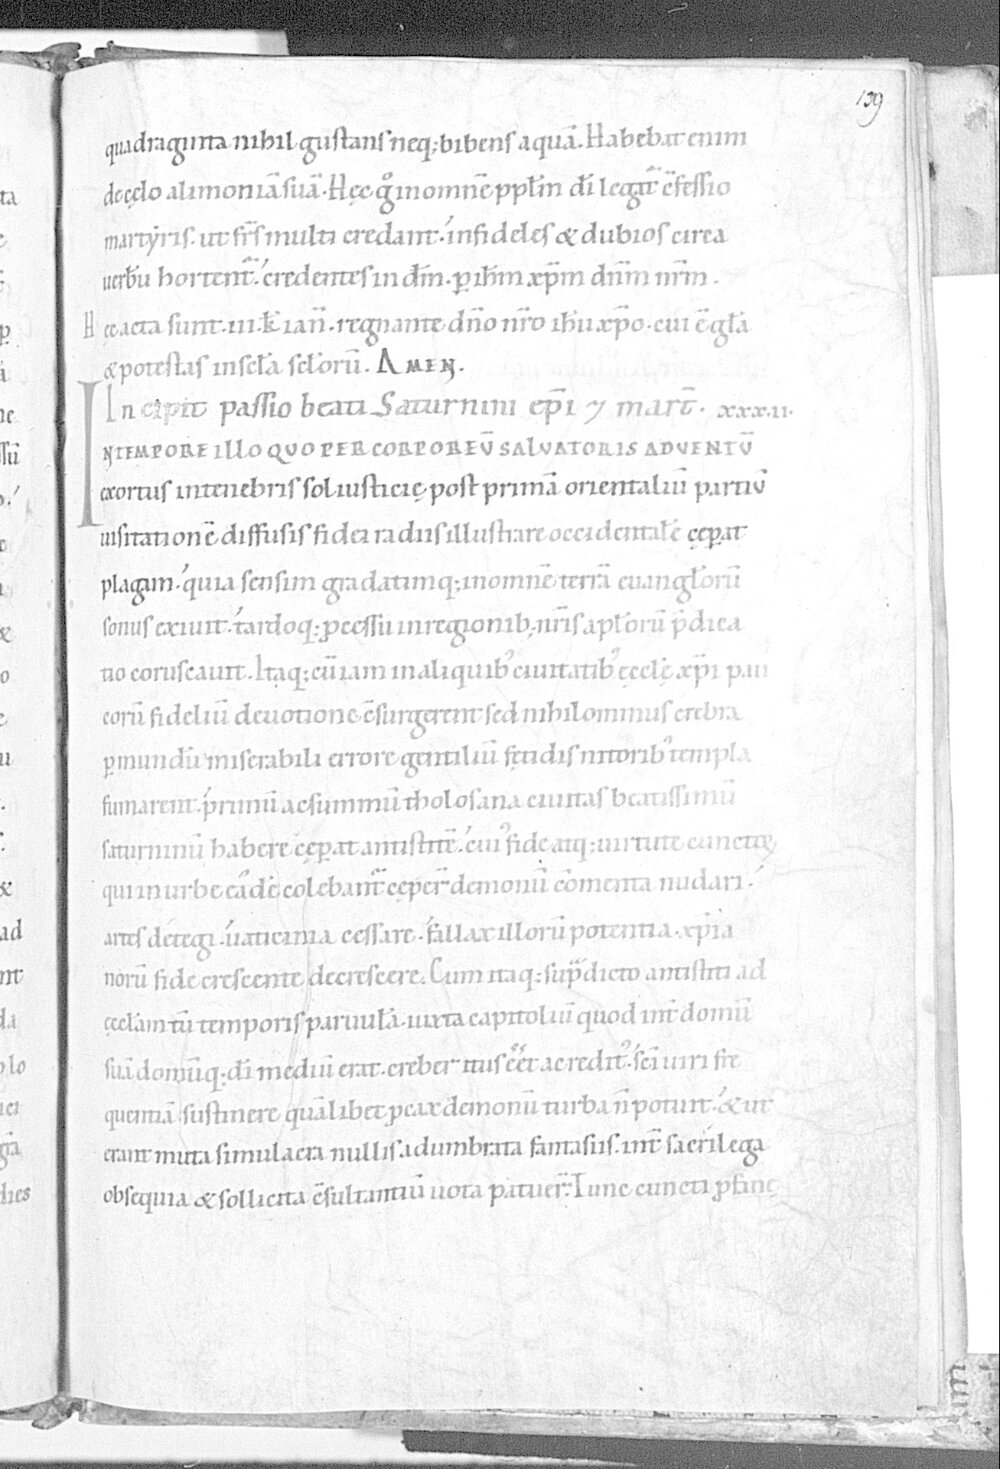 139
quadraginta nihil gustans neq; bibens aquā. Habebat enim
de cęlo alimoniā suā. Hęc g̊ in omnē ppl̄m dī legat̄ c̄fessio
martẏris. ut fr̄s multi credant. infideles & dubios circa
uerbū hortent̄. credentes in dn̄m. p ih̄m xp̄m dn̄m nr̄m.
Hęc acta sunt. iii. kl̄ ian̄. regnante dn̄o nr̄o ih̄u xp̄o. cui ē gl̄a
& potestas in scl̄a scl̄orū. AMEN.
Incipit passio beati Saturnini ep̄i ⁊ mart̄. xxx.ii.
IN TEMPORE ILLO QUO PER CORPOREŪ SALVATORIS ADVENTŪ
exortus in tenebris sol iusticię post primā orientaliū partiū
uisitationē diffusis fidei radiis illustrare occidentalē cęp̄at
plagam. quia sensim gradatimq; in omnē terrā euangl̄orū
sonus exiuit. tardoq; pcessu in regionib; nr̄is apl̄orū p̄dica
tio coruscauit. Itaq; cū iam in aliquib; ciuitatib; ęcclę xp̄i pau
corū fideliū deuotione c̄surgerent sed nihilominus crebra
p mundū miserabili errore gentiliū fętidis nitorib; templa
fumarent. primū ac summū tholosana ciuitas beatissimū
saturninū habere cęp̄at antistitē. cui; fide atq; uirtute cunctę
qui in urbe eādē colebant̄ cęper̄ demonū c̄menta nudari.
artes detegi. uaticinia cessare. fallax illorū potentia. xp̄ia
norū fide crescente decrescere. Cum itaq; sup̄dicto antistiti ad
ęccl̄am tū temporis paruulā. iuxta capitoliū quod int̄ domū
suā domūq; dī mediū erat. creber itus ēēt ac redit;. sc̄i uiri fre
quentiā sustinere quālibet pcax demonū turba n̄ potuit. & ut
erant muta simulacra nullis adumbrata fantasiis. int̄ sacrilega
obsequia & sollicita c̄sultantiū uota patuer̄. Tunc cuncti pfanę